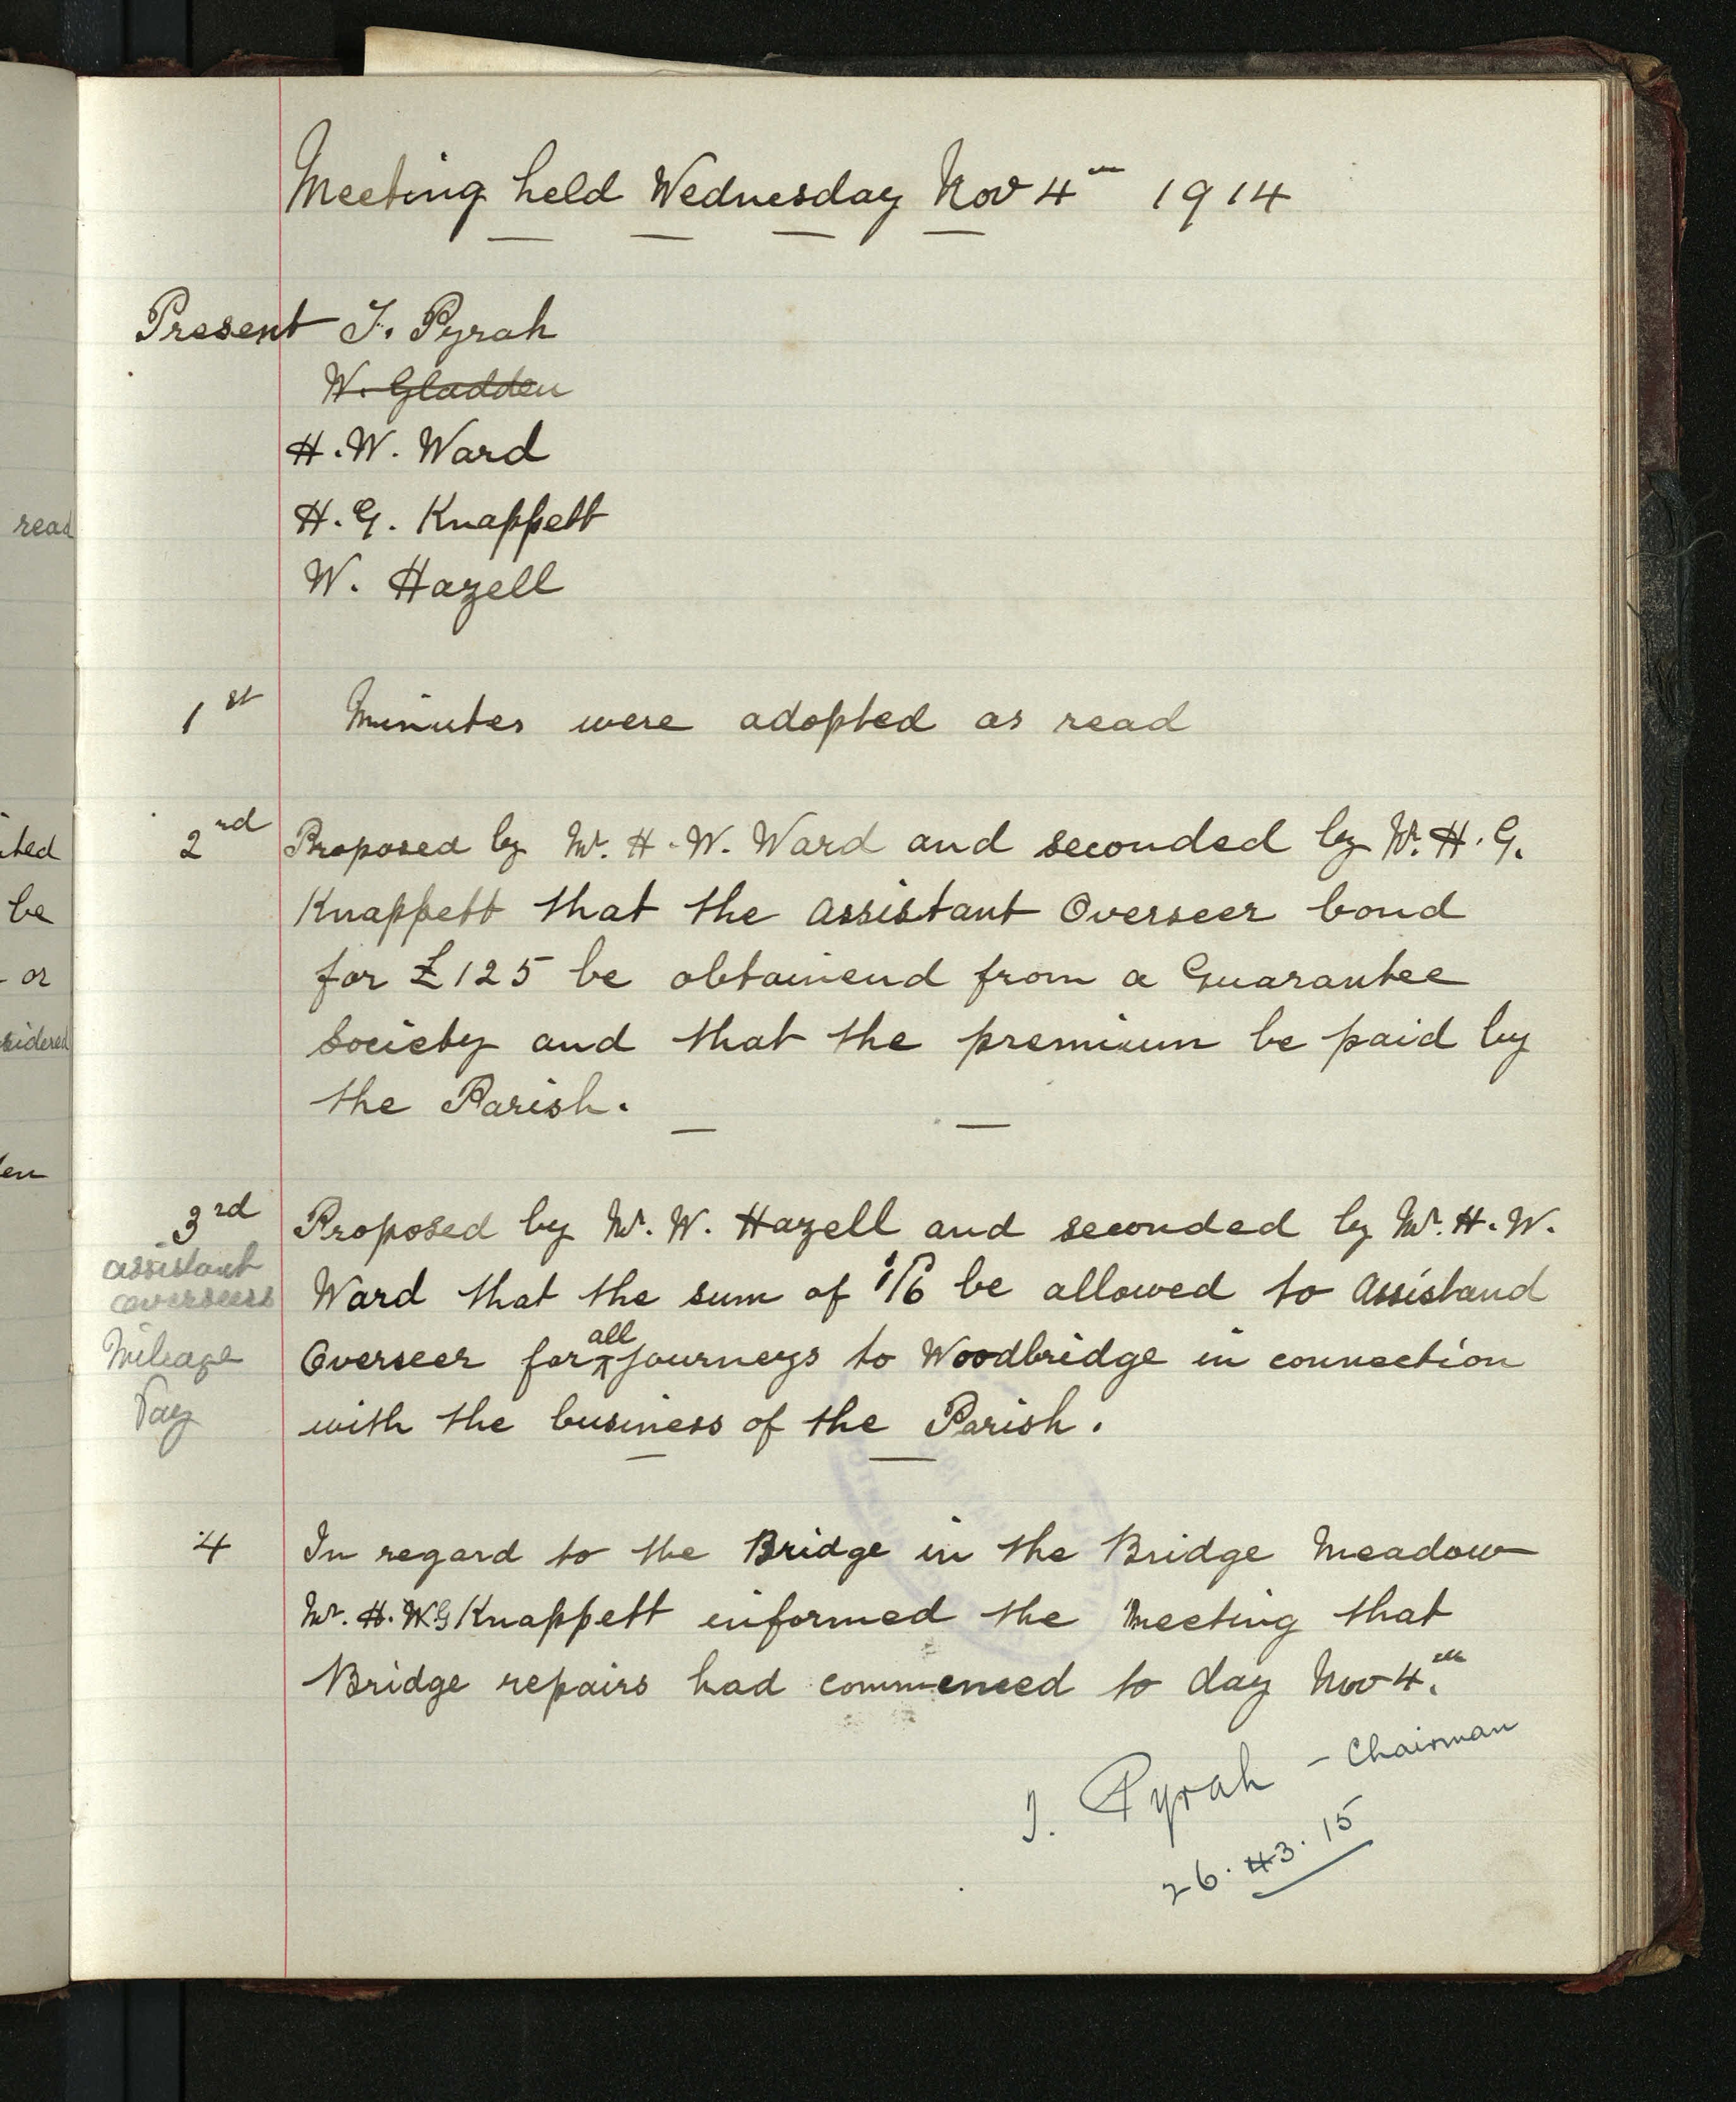 Meeting held Wednesday Nov 4th 1914
Present J. Pyrah
W. Gladden
H. W. Ward
H. G. Knappett
W. Hazell
1st Minutes were adopted as read
2nd Proposed by Mr. H. W. Ward and seconded by Mr. H. G.
Knappett that the Assistant Overseer bond
for £125 be obtainend from a Guarantee
Society and that the premium be paid by
the Parish.
3rd Proposed by Mr. W. Hazell and seconded by Mr. H. W.
assistant
overseers
Mileage
Pay
Ward that the sum of 1/6 be allowed to Assistand
Overseer for all journeys to Woodbridge in connection
with the business of the Parish.
4 In regard to the Bridge in the Bridge Meadow
Mr. H. W G Knappett informed the Meeting that
Bridge repairs had commenced to day Nov 4th.
J. Pyrah - Chairman
26. 3. 15
read
ted
be
or
sidered
en